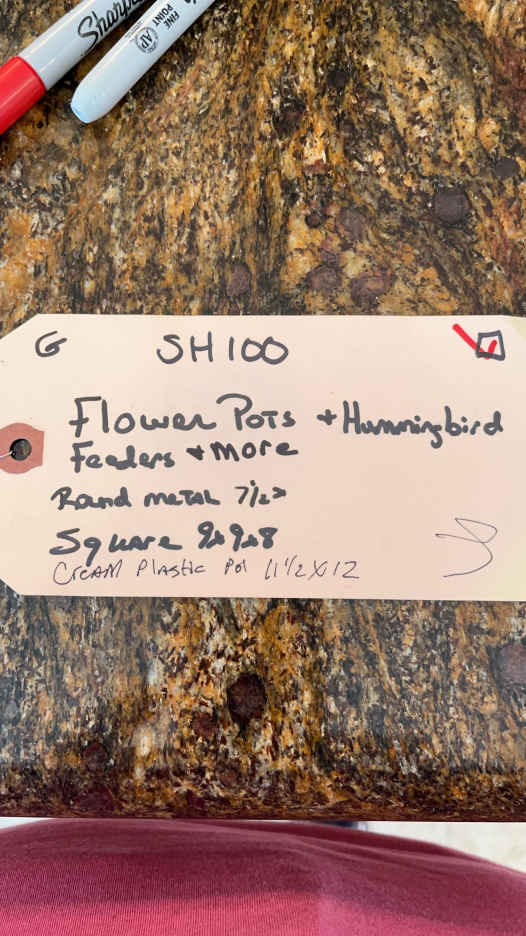 Sharpie
FINE
POINT
AP
G SH100
Flower Pots + Hummingbird
Feeders + more
Round metal 7½
Square 9x9x8
Cream Plastic Pot 11 1/2 X 12